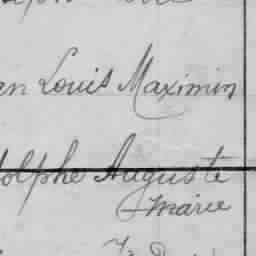 en Louis Maximin
dolphe Auguste
Marie